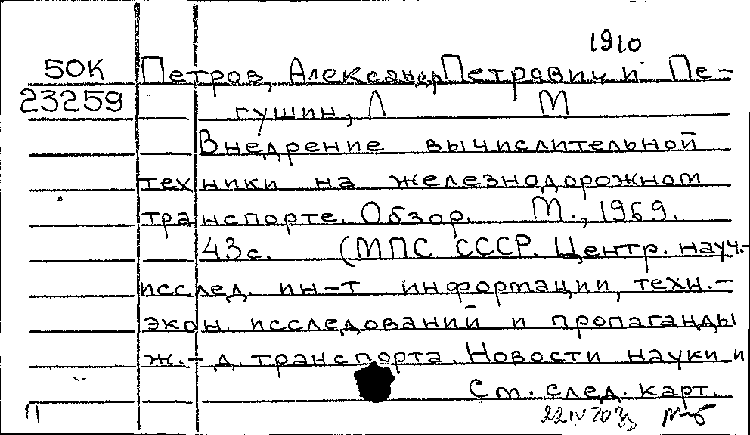 1910
50К Петров, Александр Петрович и Пе-
23259 гушин, Л М
Внедрение вычислительной
техники на железнодорожном
транспорте. Обзор. М., 1969.
43с. (МПС СССР. Центр. науч.-
исслед. ин-т информации, техн.-
экон. исследований и пропаганды
ж.-д. транспорта. Новости науки и
См. след. карт.
П